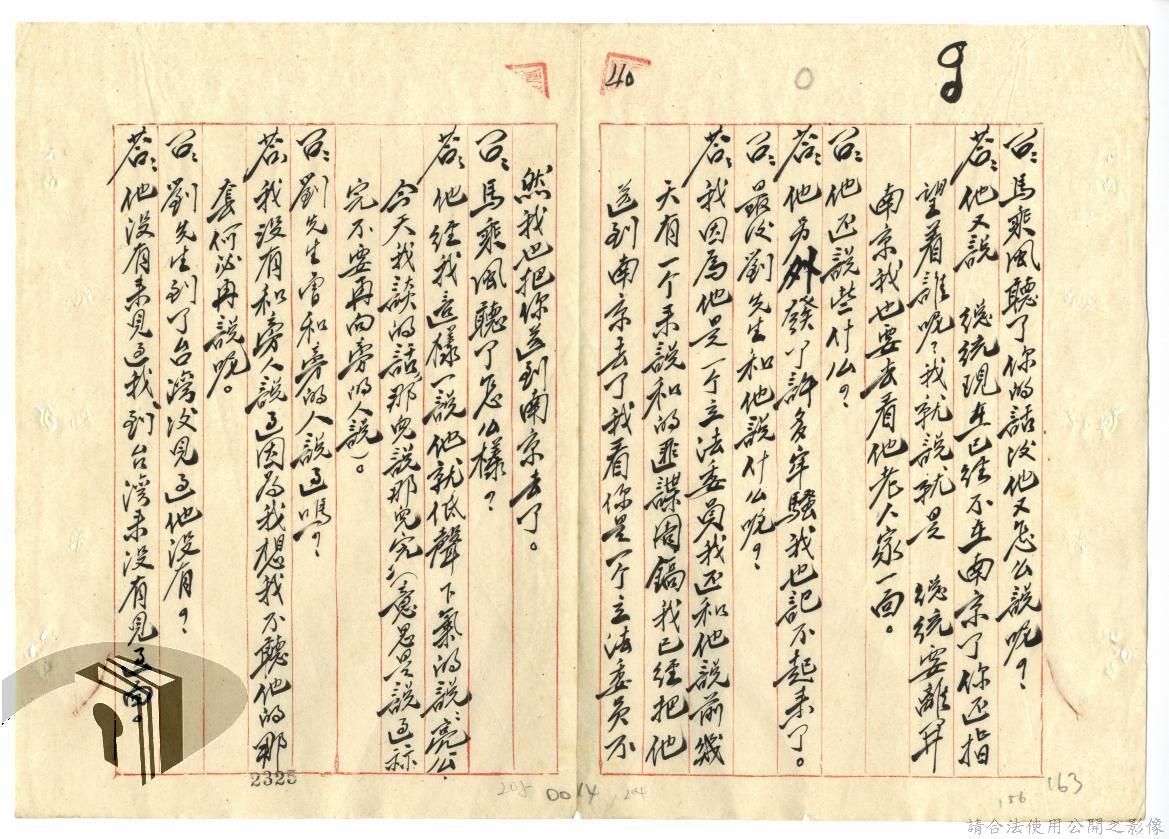 40
問：馬乘風聽了你的話後他又怎么說呢？
答：他又說　總統現在已經不在南京了你还指
望着誰呢？我就說就是　總統要離开
南京我也要去看他老人家一面。
問：他还說些什么？
答：他另外發了許多牢騷我也記不起来了。
問：最後劉先生和他說什么呢？
答：我因為他是一个立法委員我还和他說前幾
天有一个来說和的匪諜周鎬我已經把他
送到南京去了我看你是一个立法委員不
然我也把你送到南京去了。
問：馬乘風聽了怎么樣？
答：他經我這樣一說他就低聲下氣的說：亮公，
今天我談的話那兒說那兒完，（意思是說過
完不要再向旁的人說）。
問：劉先生曾和旁的人說過嗎？
答：我没有和旁人說過因為我想我不聽他的那
套何必再說呢。
問：劉先生到了台灣後見過他没有？
答：他没有来見過我，到台灣来没有見過面。
2325
205
0014
204
156
163
請合法使用公開之影像